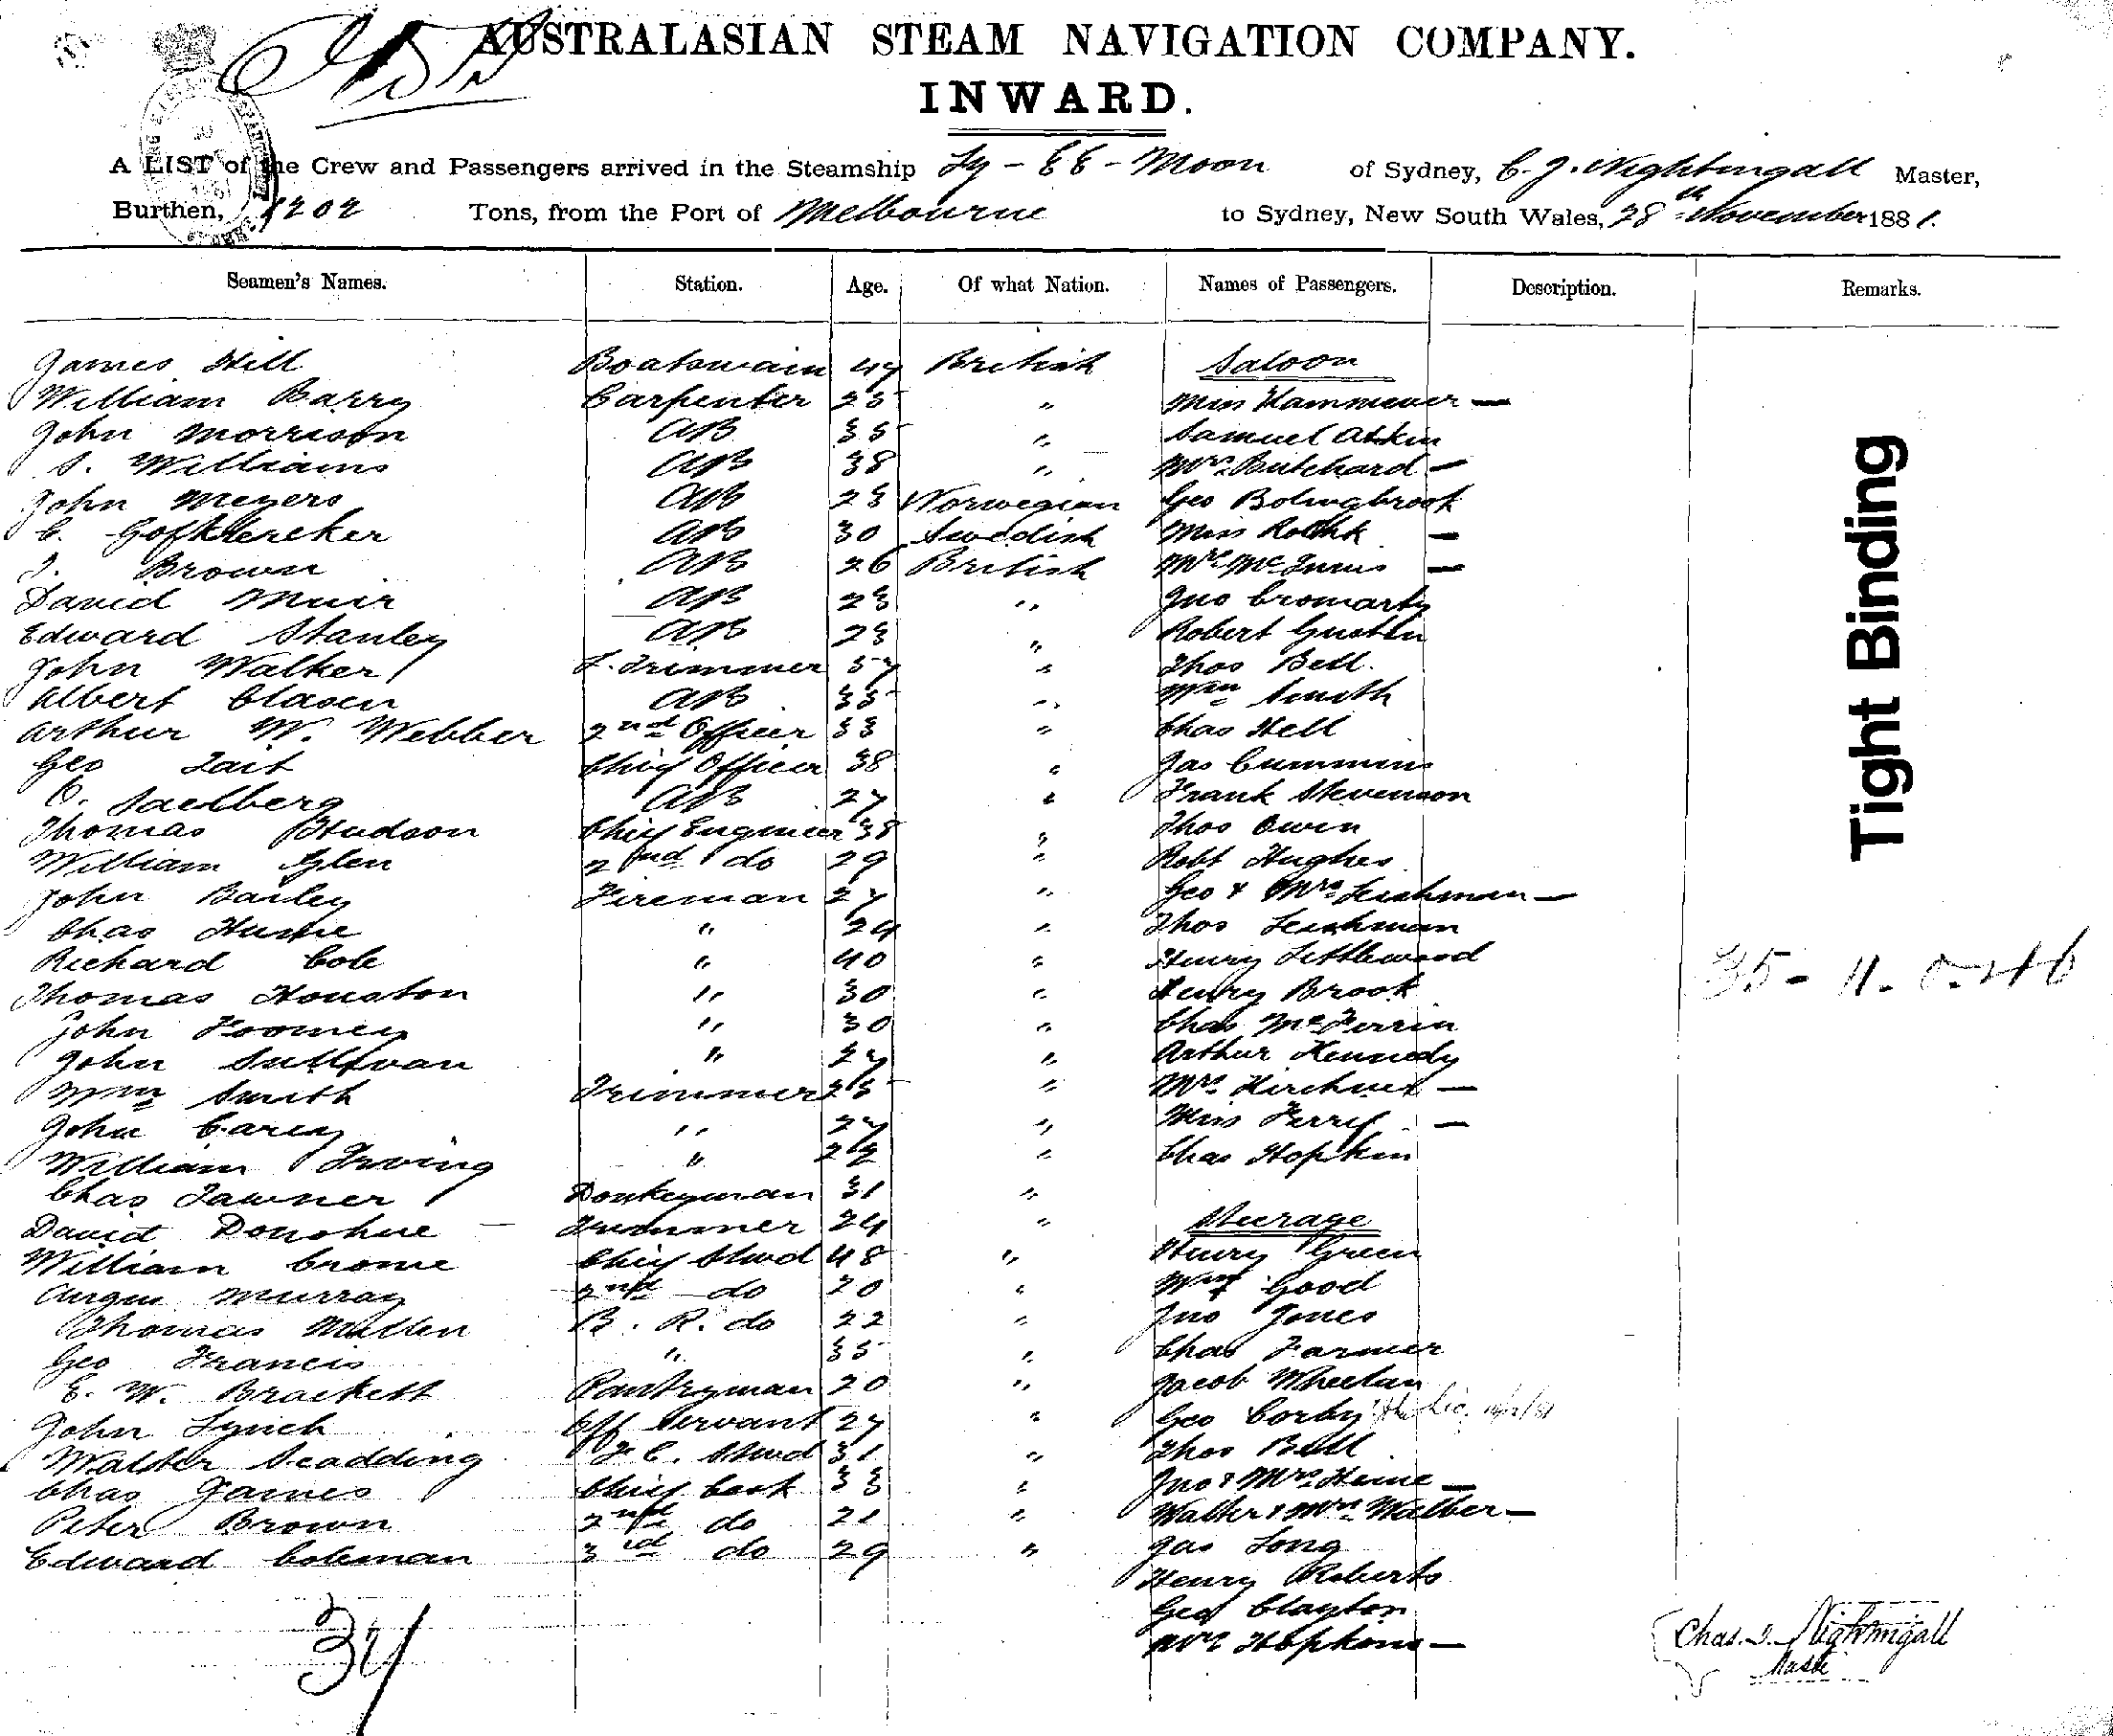 AUSTRALASIAN STEAM NAVIGATION COMPANY.
INWARD.
A LIST of the Crew and Passengers arrived in the Steamship Ly-EE-Moon of Sydney, C. J. Nightingall Master,
Burthen, 1202 Tons, from the Port of Melbourne to Sydney, New South Wales, 28th November 1881.
Seamen's Names. Station. Age. Of what Nation. Names of Passengers. Description. Remarks.
James Hill Boatswain 47 British Saloon
William Barry Carpenter 25 " Miss —
John Morrison AB 35 " Samuel Atkin
S. Williams AB 38 " Mrs Butchard —
John Meyers AB 23 Norwegian Geo Bolingbrook
C. AB 30 Swedish Miss —
J. Brown AB 26 British Mrs McInnis —
David Muir AB 23 " Jno Cromarty
Edward Stanley AB 23 " Robert Gustin
John Walker L. Trimmer 57 " Thos Bell.
Albert Clasen AB 35 " Wm Smith
Arthur W. Webber 2nd Officer 33 " Chas Hell
Geo Tait Chief Officer 38 " Jas Cummins
O. Saelberg AB 27 " Frank Stevenson
Thomas Hudson Chief Engineer 38 " Thos Owen
William Glen 2nd do 29 " Robt Hughes
John Bailey Fireman 27 " Geo & Mrs Leishman —
Chas Hume " 24 " Thos Leishman
Richard Cole " 40 " Henry Littlewood
Thomas Houston " 30 " Henry Brook
John Toomey " 30 " Chas McFerrin
John Sullivan " 27 " Arthur Kennedy
Wm Smith Trimmer 25 " Mrs Kirchner —
John Carey " 27 " Miss Ferry —
William Irving " 22 " Chas Hopkin
Chas Tawner Donkeyman 31 "
David Donohue Trimmer 24 " Steerage
William Crome Chief Stwd 48 " Henry Green
Angus Murray 2nd do 20 " Wm Good
Thomas Mullen B. R. do 22 " Jno Jones
Geo Francis " 35 " Chas Farmer
E. W. Brackett Pantryman 20 " Jacob Wheelan
John Lynch Off Servant 27 " Geo Corby
Walter Scadding F. C. Stwd 31 " Thos Bell
Chas James Chief Cook 33 " Jno & Mrs Heine —
Peter Brown 2nd do 21 " Walter & Mrs Walber —
Edward Coleman 3rd do 29 " Jas Long
Henry Roberts
Geo Clayton
Mrs Hopkins —
Tight Binding
37
Chas. J. Nightingall
Master